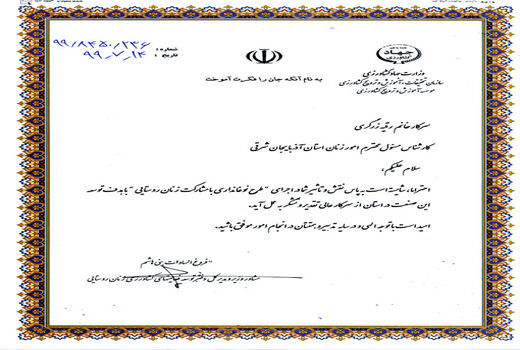 شماره : ۹۹/۸۴۵۰/۲۳۶
تاریخ : ۹۹.۷.۱۴
به نام آنکه جان را فکرت آموخت
جهاد
کشاورزی
وزارت جهاد کشاورزی
سازمان تحقیقات، آموزش و ترویج کشاورزی
موسسه آموزش و ترویج کشاورزی
سرکار خانم رقیه زرگری
کارشناس مسئول محترم امور زنان استان آذربایجان شرقی
سلام علیکم،
احتراما، شایسته است به پاس نقش و تأثیر شما در اجرای "طرح نوغانداری با مشارکت زنان روستایی" با هدف توسعه
این صنعت در استان از سرکار عالی تقدیر و تشکر به عمل آید.
امید است با توجه الهی و در سایه تدبیر و همتتان در انجام امور موفق باشید.
فروغ السادات بنی هاشم
مشاور وزیر و مدیرکل دفتر توسعه فعالیتهای کشاورزی زنان روستایی